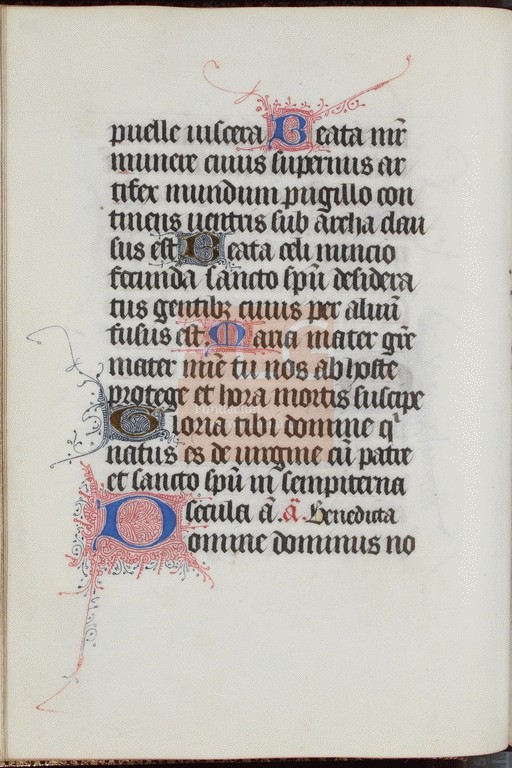 puelle uiscera Beata mr̄
munere cuius supernus ar
tifex mundum pugillo con
tinens uentris sub archa clau
sus est Beata celi nuncio
fecunda sancto spū desidera
tus gentibꝫ cuius per aluū
fusus est. Maria mater grē
mater mīe tu nos ab hoste
protege et hora mortis suscipe
Gloria tibi domine qⁱ
natus es de uirgine cū patre
et sancto spū in sempiterna
secula ā. ā. Benedicta
Domine dominus no
Fundación